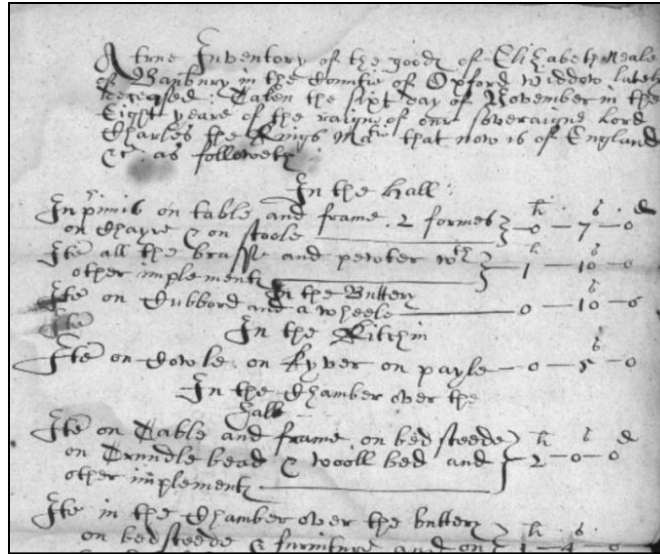 A true Inventory of the goods of Elizabeth Neale
of Banbury in the Countie of Oxford widdow lately
deceased: Taken the sixt day of November in the
Eight yeare of the raigne of our soveraigne Lord
Charles the Kings Matie that now is of England
&c as followeth
In the Hall:
li s d
In primis on table and frame 2 formes
on Chayre & on stoole 0 — 7 — 0
li s
Ite all the brasse and pewter wth
other implements 1 — 10 — 0
In the Buttery
s
Ite on Cubbord and a wheele 0 — 10 — 6
Ite
In the Kitchin
s
Ite on Cowle on Kyver on payle — 0 — 5 — 0
In the Chamber over the
Hall
li s d
Ite on Table and frame on bedsteede
on Trundle bead & wooll bed and 2 — 0 — 0
other implements
Ite in the Chamber over the buttery
li s
on bedsteede & furniture and on